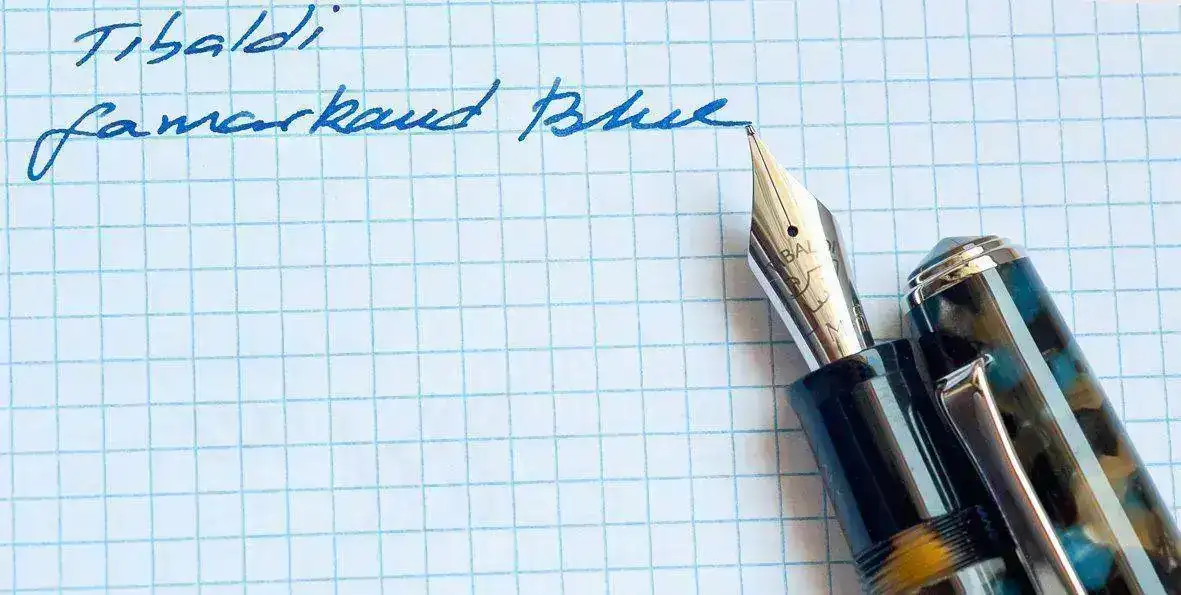 Tibaldi
Samarkand Blue
TIBALDI
M